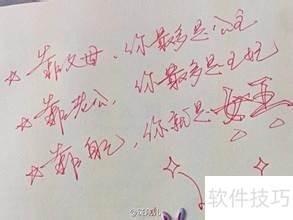 ☆靠父母，你最多是公主
☆靠老公，你最多是王妃
☆靠自己，你就是女王
软件技巧